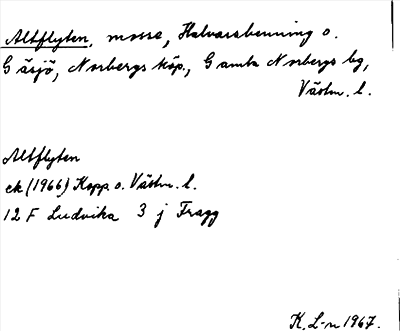 Altflyten, mosse, Halvarsbenning o.
Gäsjö, Norbergs köp., Gamla Norbergs bg,
Västm. l.
Altflyten
ek (1966) Kopp. o. Västm. l.
12 F Ludvika 3 j Fragg
K. L-n 1967.